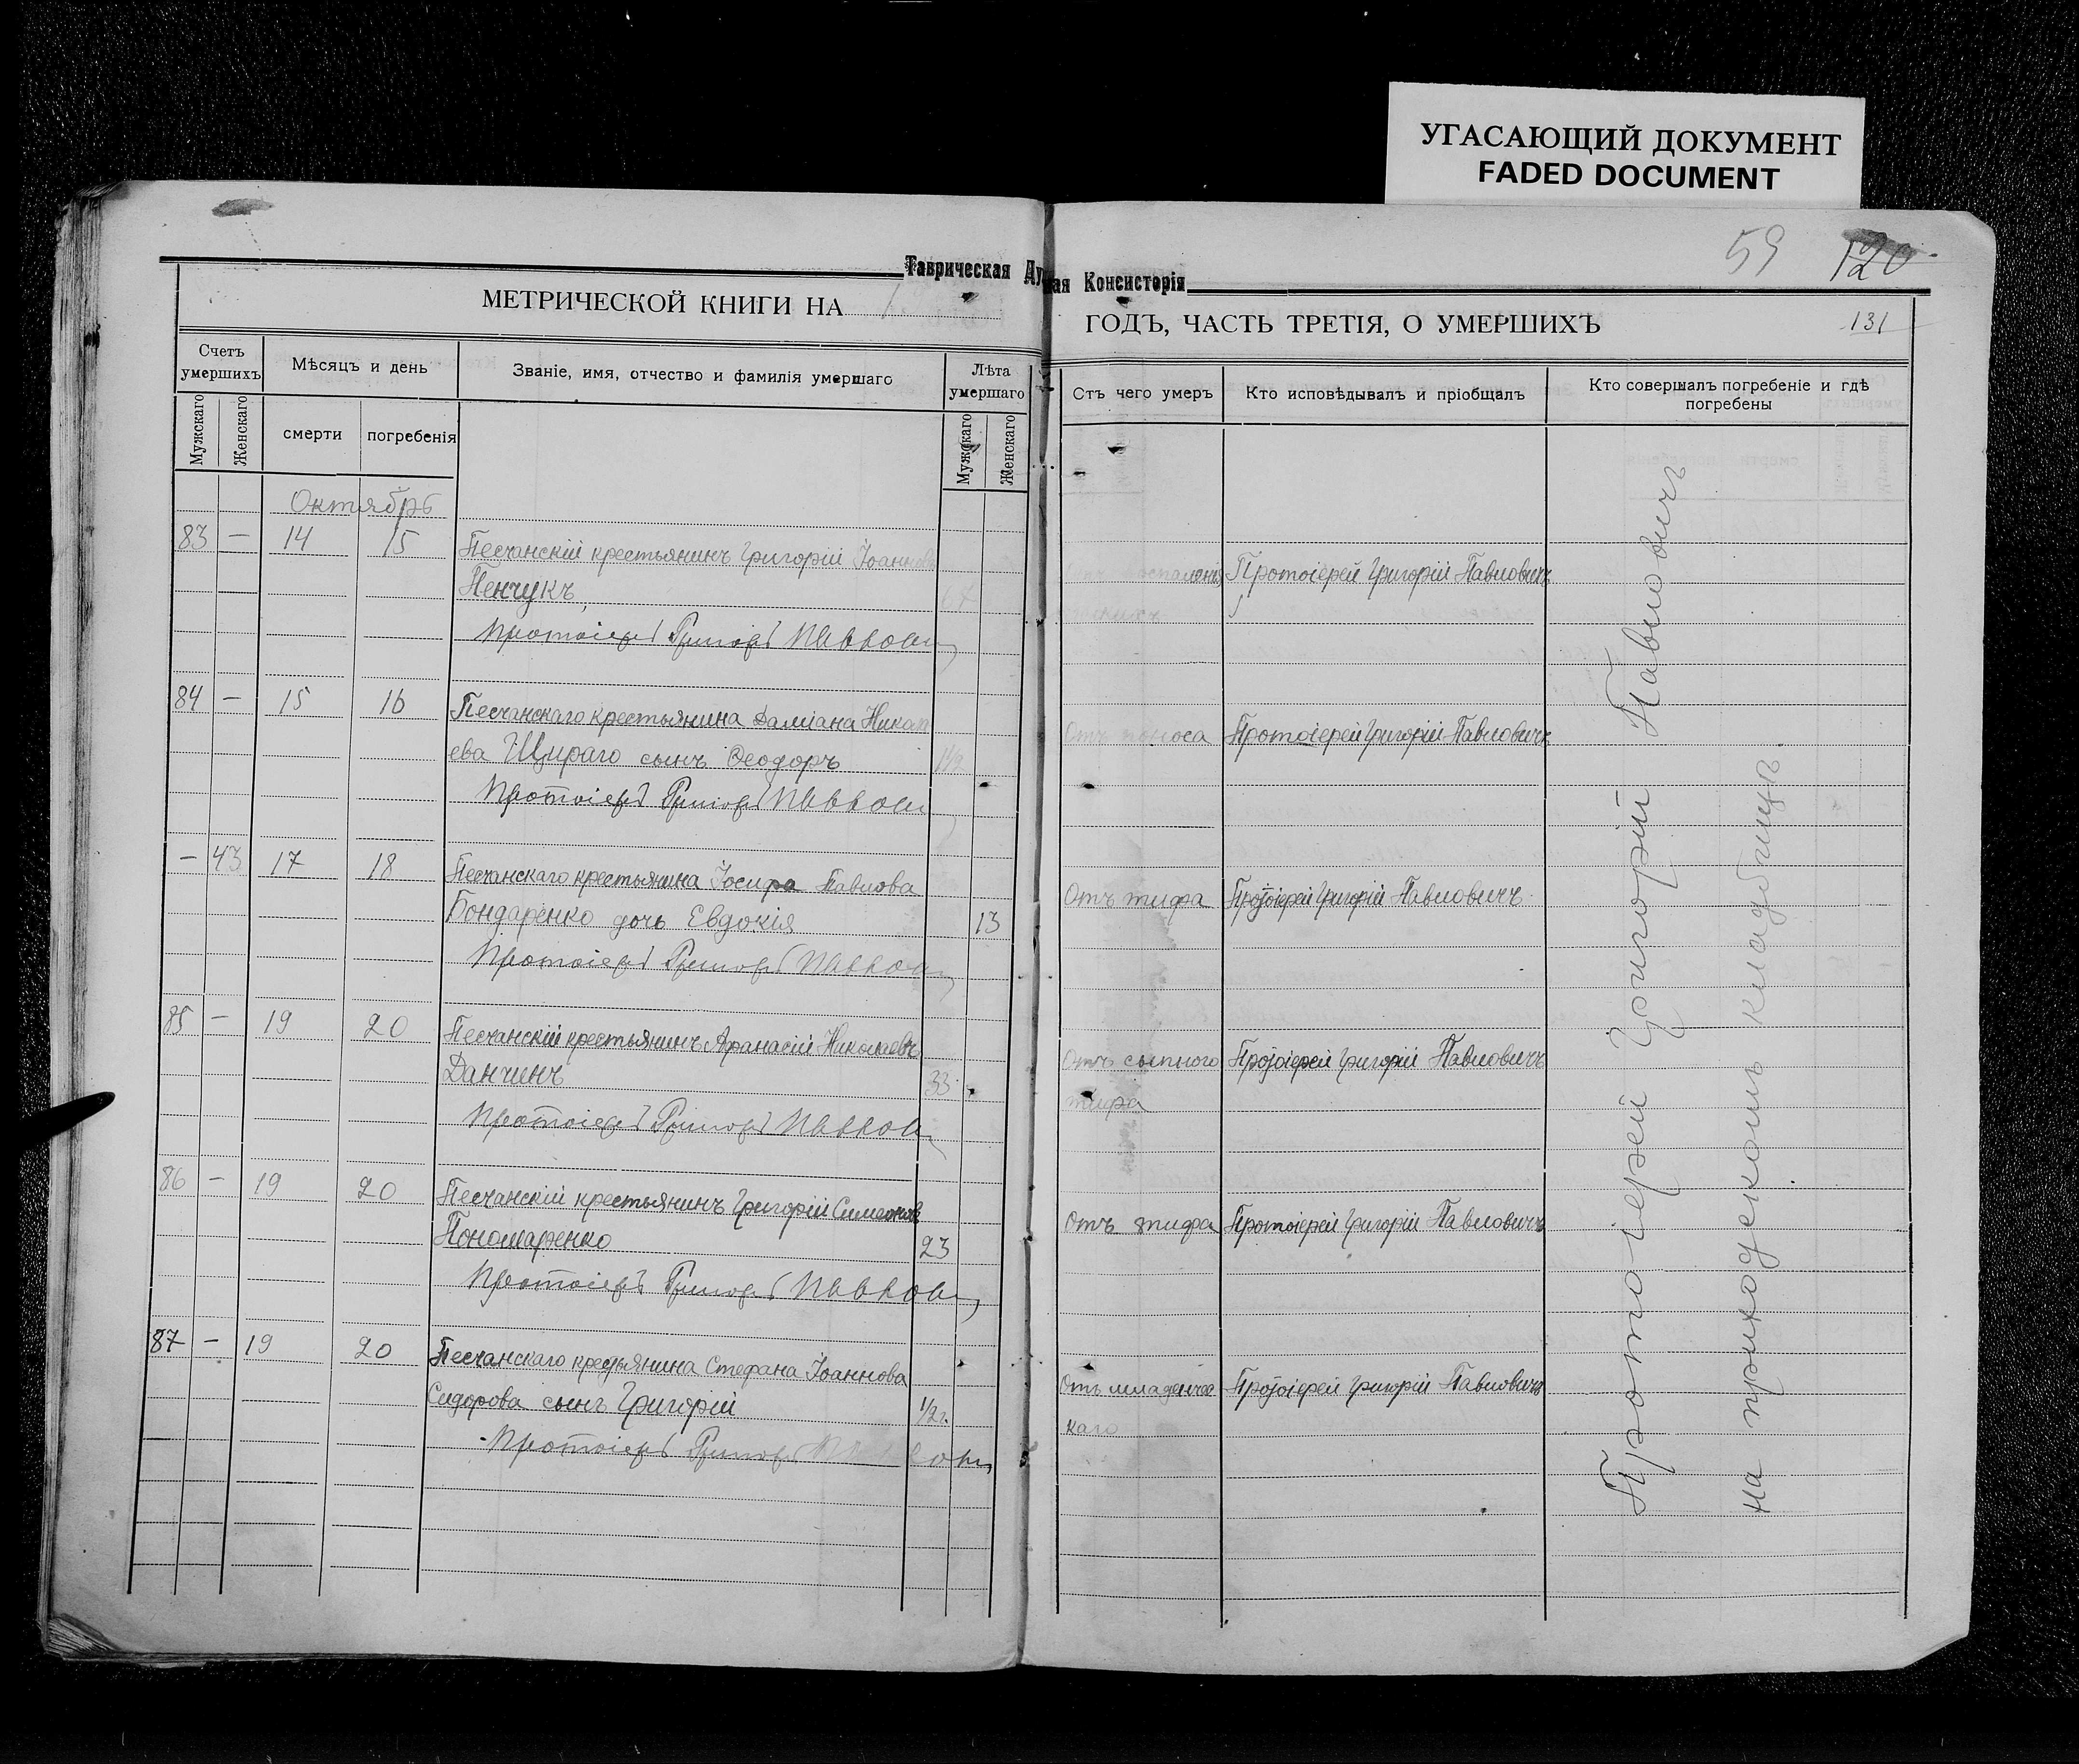 УГАСАЮЩИЙ ДОКУМЕНТ
FADED DOCUMENT
59 120
Таврическая Ду
ная Консисторія
МЕТРИЧЕСКОЙ КНИГИ НА
ГОДЪ, ЧАСТЬ ТРЕТІЯ, О УМЕРШИХЪ
131
Счетъ умершихъ
Мѣсяцъ и день
Званіе, имя, отчество и фамилія умершаго
Лѣта умершаго
Отъ чего умеръ
Кто исповѣдывалъ и пріобщалъ
Кто совершалъ погребеніе и гдѣ погребены
Мужскаго
Женскаго
смерти
погребенія
Мужскаго
Женскаго
Октябрь
83 — 14 15 Песчанскій крестьянинъ Григорій Іоаннов
Пенчукъ, 67
Протоіерей Григорій Павловичъ
Протоіерей Григорій Павловичъ
84 — 15 16 Песчанскаго крестьянина Даміана Никол
ева Щираго сынъ Ѳеодоръ 1/2
Протоіерей Григорій Павловичъ
Отъ поноса Протоіерей Григорій Павловичъ
— 43 17 18 Песчанскаго крестьянина Іосифа Павлова
Бондаренко дочь Евдокія 13
Протоіерей Григорій Павловичъ
Отъ тифа Протоіерей Григорій Павловичъ
85 — 19 20 Песчанскій крестьянинъ Афанасій Николаевъ
Данчинъ 33
Протоіерей Григорій Павловичъ
Отъ сыпного Протоіерей Григорій Павловичъ
тифа
86 — 19 20 Песчанскій крестьянинъ Григорій Симеонов
Пономаренко 23
Протоіерей Григорій Павловичъ
Отъ тифа Протоіерей Григорій Павловичъ
87 — 19 20 Песчанскаго крестьянина Стефана Іоаннова
Сидорова сынъ Григорій 1/2 г.
Протоіерей Григорій Павловичъ
Отъ младенчес Протоіерей Григорій Павловичъ
каго
Протоіерей Григорій Павловичъ
на приходскомъ кладбищѣ.